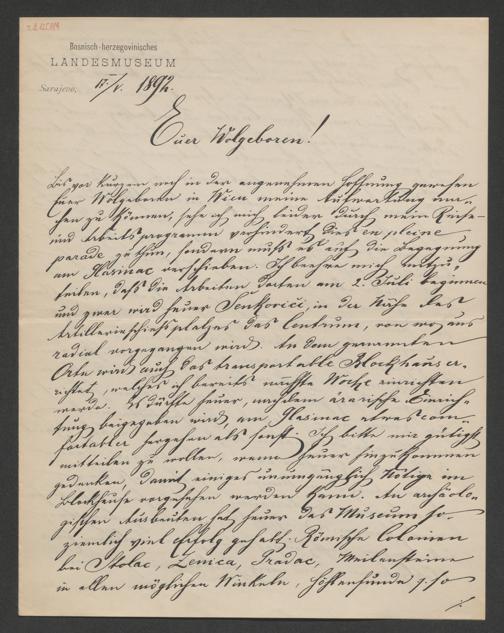 Bosnisch-herzegovinisches
LANDESMUSEUM
Sarajevo, 17/V. 1892.
Euer Wolgeboren!
Bis vor Kurzem noch in der angenehmen Hoffnung gewesen
Euer Wolgeboren in Wien meine Aufwartung ma-
chen zu können, sehe ich mich leider durch mein Reise-
und Arbeitsprogramm verhindert dies en pleine
parade zu thun, sondern muß es auf die Begegnung
am Glasinac verschieben. Ich beehre mich mitzu-
teilen, daß die Arbeiten dorten am 2. Juli beginnen
und zwar wird heuer Senkovići, in der Nähe des
Artillerieschießplatzes das Centrum, von wo aus
radial vorgegangen wird. An dem genannten
Orte wird auch das transportable Blockhaus er-
richtet, welches ich bereits nächste Woche einrichten
werde. Es dürfte heuer, nachdem ärarische Einrich-
tung beigegeben wird am Glasinac etwas com-
fortabler hergehen als sonst. Ich bitte mir gütigst
mitteilen zu wollen, wann heuer hinzukommen
gedenken, damit einiges unumgänglich Nötige im
Blockhause vorgesehen werden kann. An archäolo-
gischen Ausbeuten hat heuer das Museum so-
ziemlich viel Erfolg gehabt. Römische Colonien
bei Stolac, Zenica, Gradac, Meilensteine
in allen möglichen Winkeln, Höhlenfunde